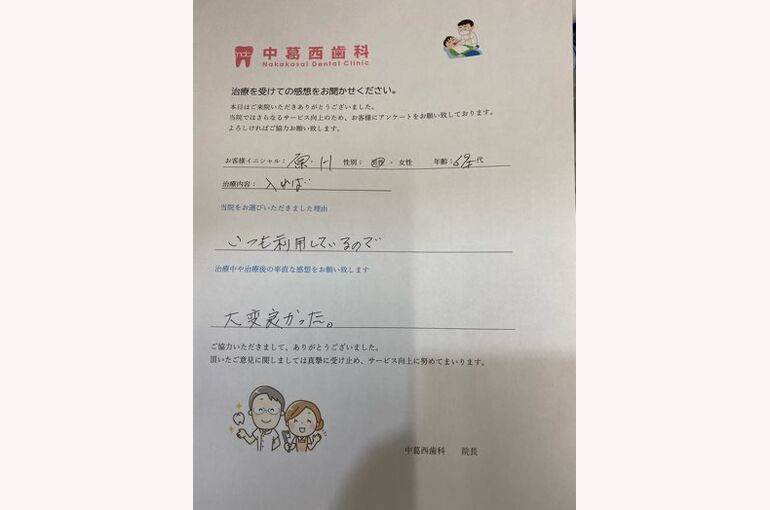 中葛西歯科
Nakakasai Dental Clinic
治療を受けての感想をお聞かせください。
本日はご来院いただきありがとうございました。
当院ではさらなるサービス向上のため、お客様にアンケートをお願い致しております。
よろしければご協力お願い致します。
お客様イニシャル： 性別： ・ 女性 年齢： 代
治療内容： 入れば
当院をお選びいただきました理由
いつも利用しているので
治療中や治療後の率直な感想をお願い致します
大変良かった。
ご協力いただきまして、ありがとうございました。
頂いたご意見に関しましては真摯に受け止め、サービス向上に努めてまいります。
中葛西歯科 院長